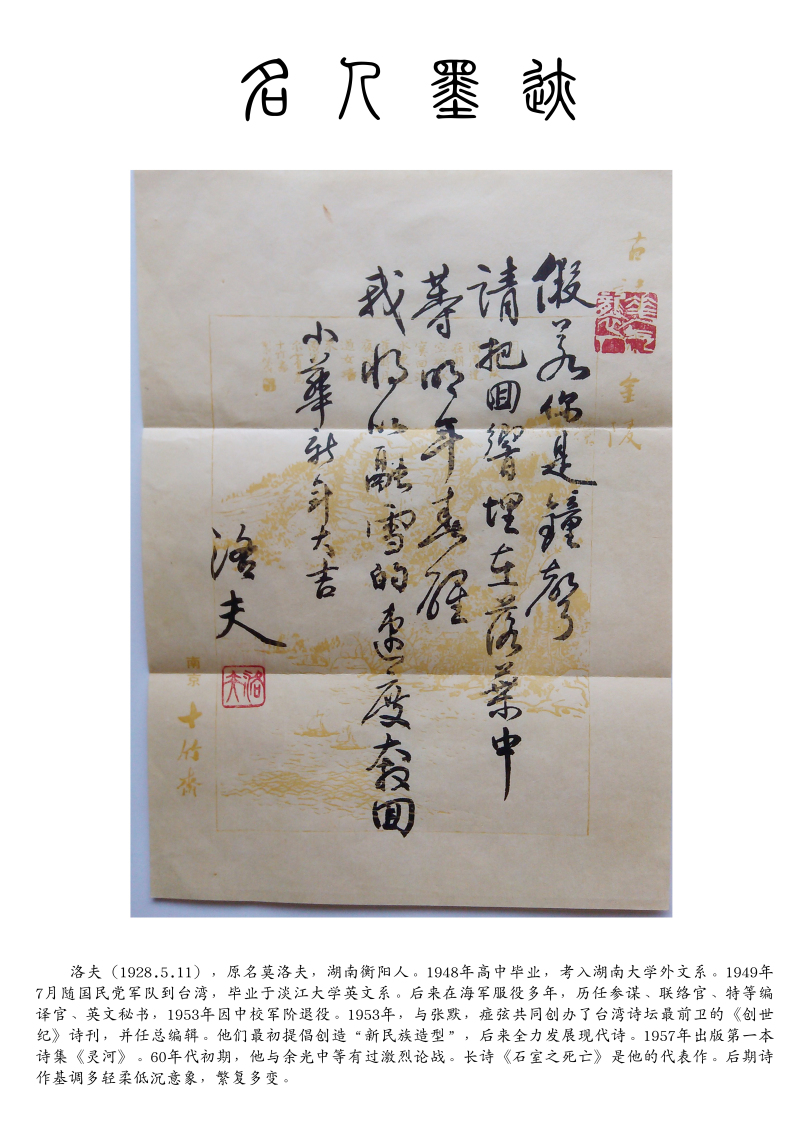 名人墨迹
假若你是鐘聲
請把回響埋在落葉中
等明年春醒
我將以融雪的速度奔回
小華新年大吉
洛夫
洛夫
古
金陵
南京
十竹齋
洛夫（1928.5.11），原名莫洛夫，湖南衡阳人。1948年高中毕业，考入湖南大学外文系。1949年
7月随国民党军队到台湾，毕业于淡江大学英文系。后来在海军服役多年，历任参谋、联络官、特等编
译官、英文秘书，1953年因中校军阶退役。1953年，与张默，痖弦共同创办了台湾诗坛最前卫的《创世
纪》诗刊，并任总编辑。他们最初提倡创造“新民族造型”，后来全力发展现代诗。1957年出版第一本
诗集《灵河》。60年代初期，他与余光中等有过激烈论战。长诗《石室之死亡》是他的代表作。后期诗
作基调多轻柔低沉意象，繁复多变。